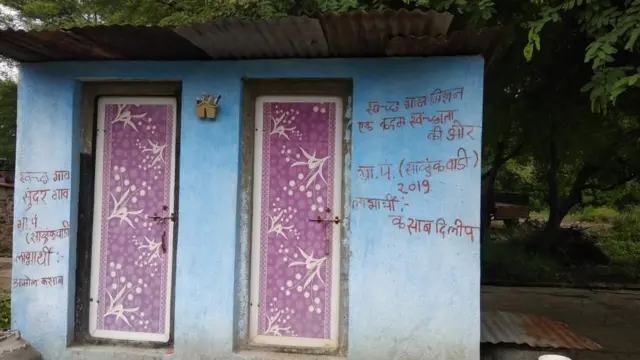 स्वच्छ गाव
सुंदर गाव
ग्रा.पं
(साळुंकवाडी
लाभार्थी :-
अमोल कसाब
स्वच्छ भारत मिशन
एक कदम स्वच्छता
की ओर
ग्रा.पं. (साळुंकवाडी)
२०१७
लाभार्थी :-
कसाब दिलीप